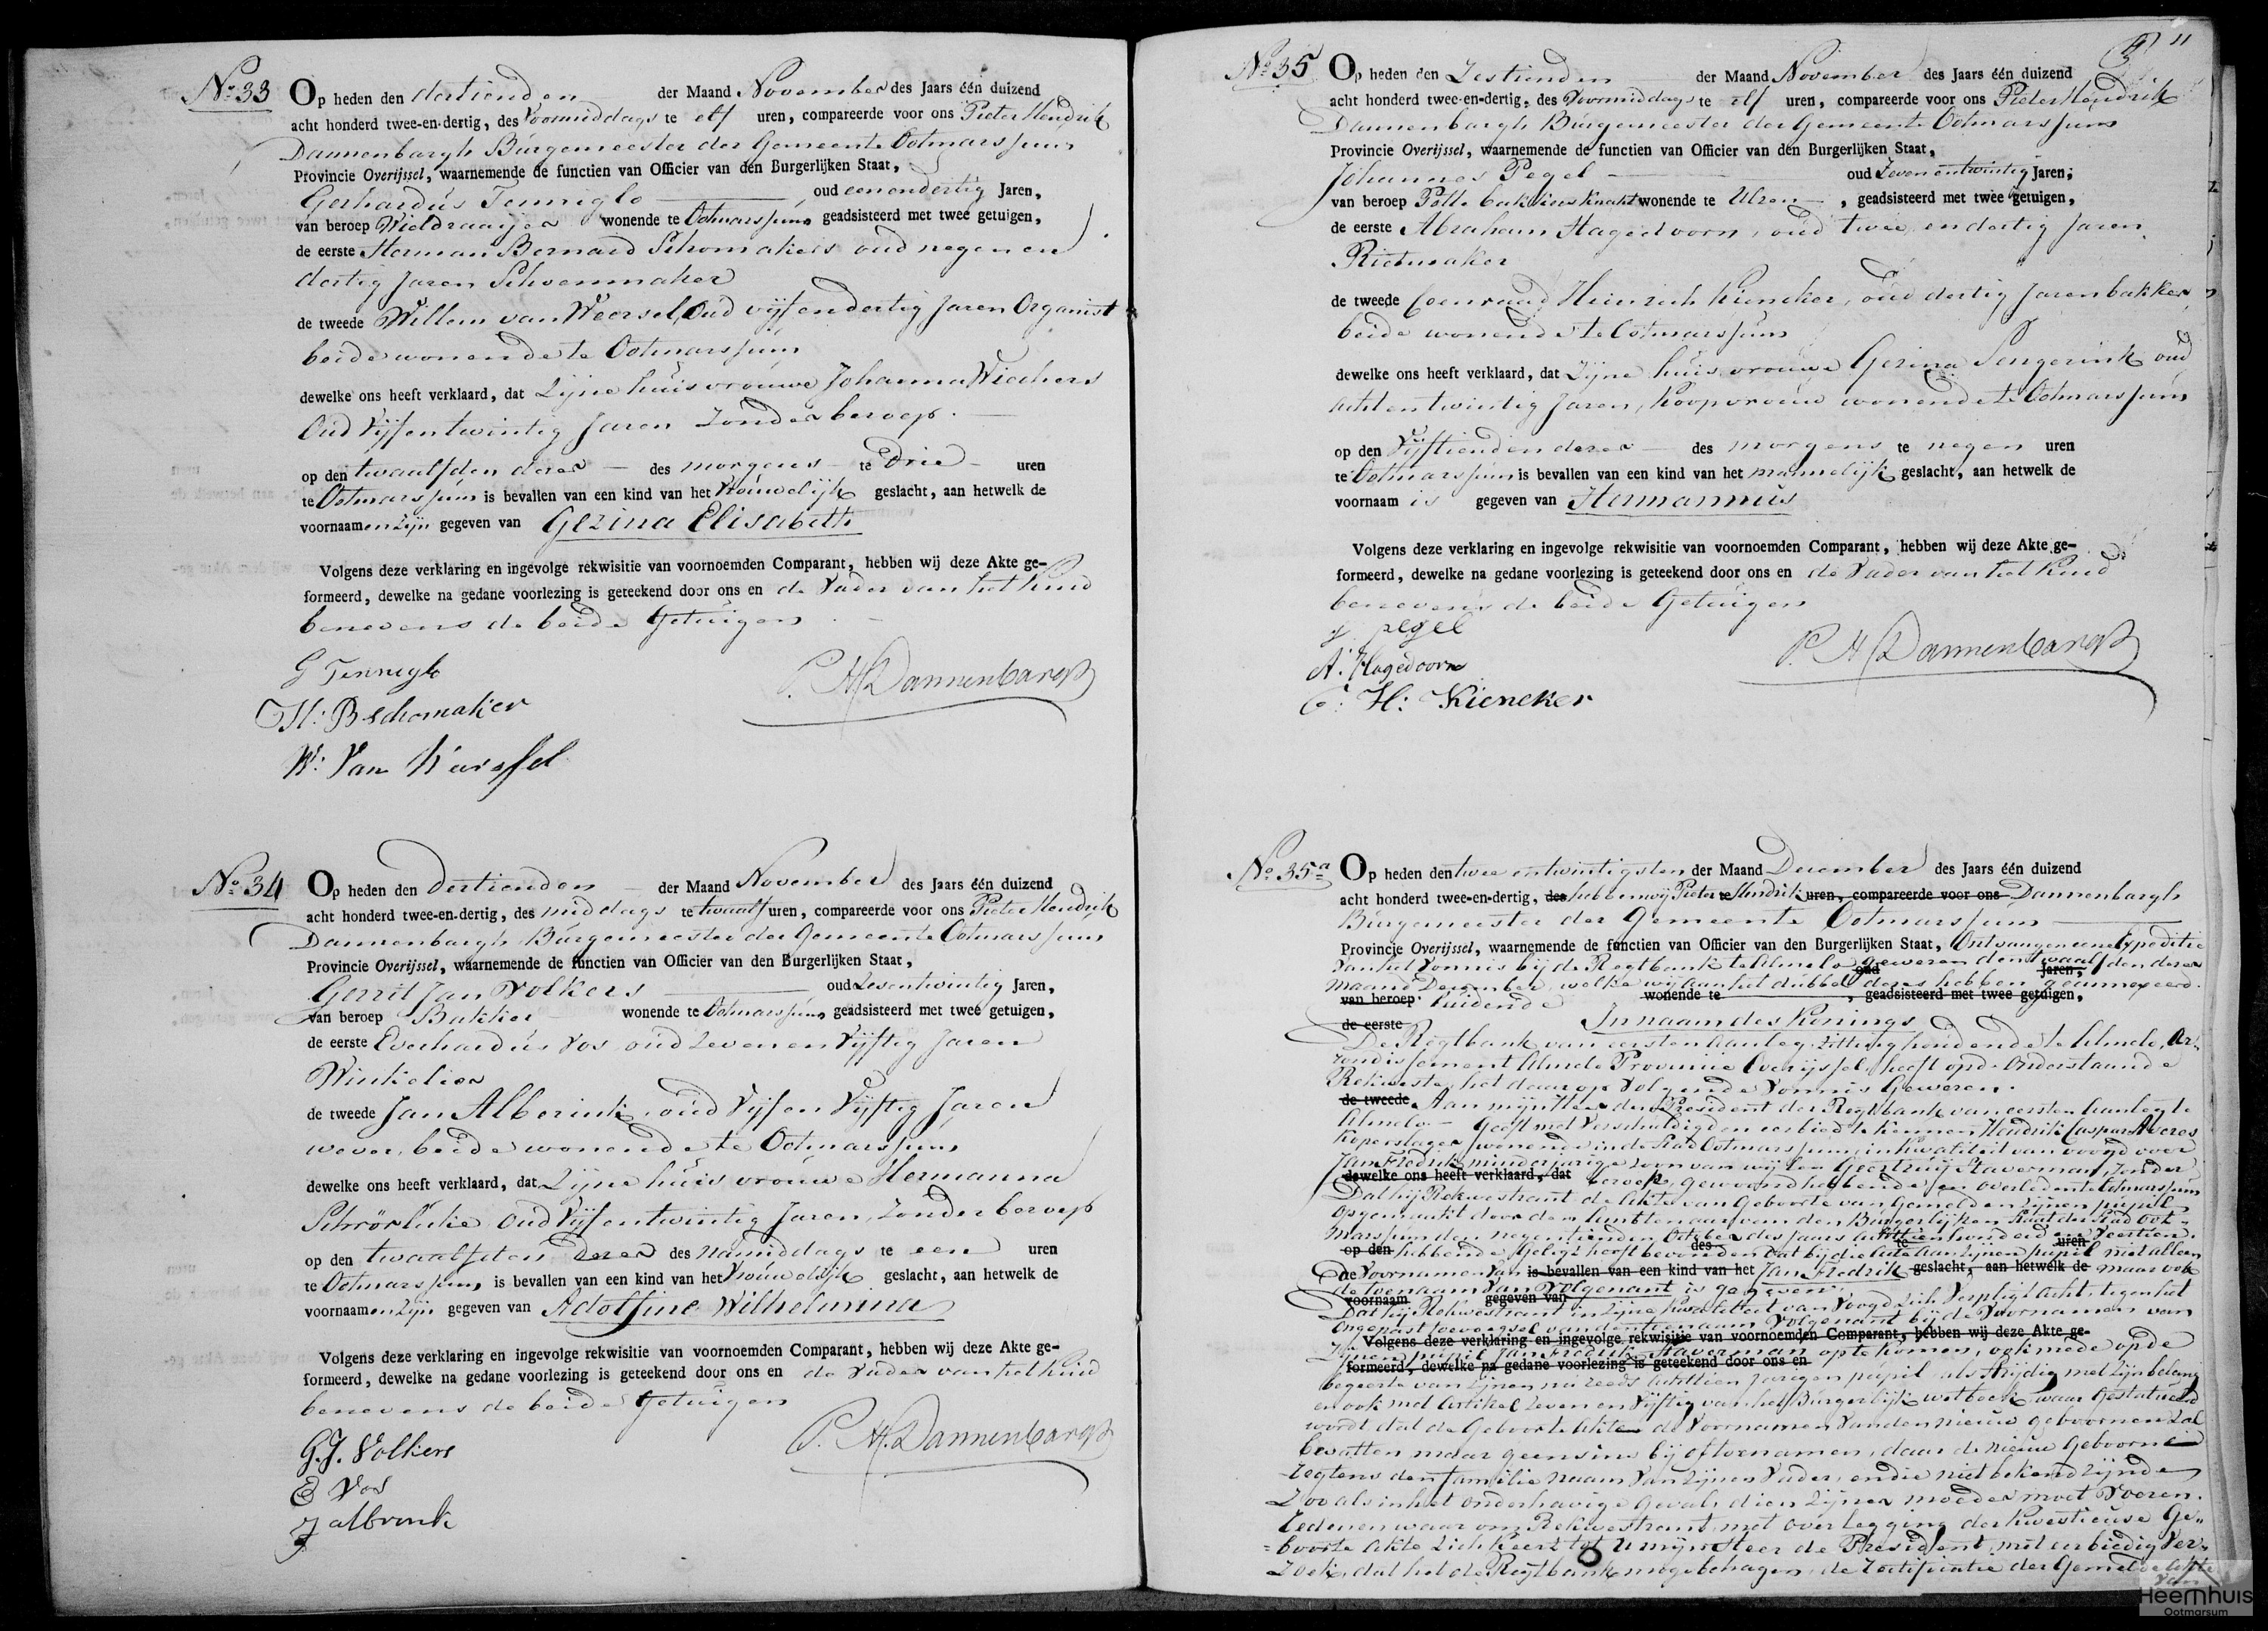 No. 33 Op heden den dertienden der Maand November des Jaars één duizend
acht honderd twee-en-dertig, des Voormiddags te elf uren, compareerde voor ons Pieter Hendrik
Dannenbargh Burgemeester der Gemeente Ootmarssum
Provincie Overijssel, waarnemende de functien van Officier van den Burgerlijken Staat,
Gerhardus Tenniglo oud eenendertig Jaren,
van beroep Wieldraaijer wonende te Ootmarssum geadsisteerd met twee getuigen,
de eerste Herman Bernard Schomakers oud negen en
dertig Jaren Schoenmaker
de tweede Willem van Weersel, Oud vijfendertig Jaren Organist
beide wonende te Ootmarssum
dewelke ons heeft verklaard, dat Zijne huisvrouwe Johanna Wiechers
Oud Vijfentwintig Jaren Zonder beroep.
op den twaalfden dezer des morgens te drie uren
te Ootmarssum is bevallen van een kind van het Vrouwelijk geslacht, aan hetwelk de
voornaamen zijn gegeven van Gezina Elisabeth
Volgens deze verklaring en ingevolge rekwisitie van voornoemden Comparant, hebben wij deze Akte ge-
formeerd, dewelke na gedane voorlezing is geteekend door ons en de Vader van het Kind
benevens de beide Getuigen
G Tenniglo
P. H. Dannenbargh
H: B schomaker
W: Van Weersel
No. 34 Op heden den Dertienden der Maand November des Jaars één duizend
acht honderd twee-en-dertig, des middags te twaalf uren, compareerde voor ons Pieter Hendrik
Dannenbargh Burgemeester der Gemeente Ootmarssum
Provincie Overijssel, waarnemende de functien van Officier van den Burgerlijken Staat,
Gerrit Jan Volkers oud Zesentwintig Jaren,
van beroep Bakker wonende te Ootmarssum geadsisteerd met twee getuigen,
de eerste Everhardus Vos oud Zevenen Vijftig Jaren
Winkelier
de tweede Jan Alberink, oud Vijfen Vijftig Jaren
wever, beide wonende te Ootmarssum
dewelke ons heeft verklaard, dat Zijne huisvrouwe Hermanna
Schrörlucke Oud Vijfentwintig Jaren, Zonder beroep
op den twaalfden dezer des namiddags te een uren
te Ootmarssum is bevallen van een kind van het Vrouwelijk geslacht, aan hetwelk de
voornaamen zijn gegeven van Adolfine Wilhelmina
Volgens deze verklaring en ingevolge rekwisitie van voornoemden Comparant, hebben wij deze Akte ge-
formeerd, dewelke na gedane voorlezing is geteekend door ons en de Vader van het Kind
benevens de beide Getuigen
P. H. Dannenbargh
G. J. Volkers
E Vos
J albrink
11
No. 35 Op heden den Zestienden der Maand November des Jaars één duizend
acht honderd twee-en-dertig, des Voormiddags te elf uren, compareerde voor ons Pieter Hendrik
Dannenbargh Burgemeester der Gemeente Ootmarssum
Provincie Overijssel, waarnemende de functien van Officier van den Burgerlijken Staat,
Johannes Pegel oud Zevenentwintig Jaren,
van beroep Potte bakkers Knecht wonende te Ulzen, geadsisteerd met twee getuigen,
de eerste Abraham Hagedoorn, oud twee en dertig Jaren
Rietmaker
de tweede Coenraad Heinrich Kieneker, oud dertig Jaren bakker
beide wonende te Ootmarssum
dewelke ons heeft verklaard, dat Zijne huisvrouwe Gezina Sengerink oud
achtentwintig Jaren, Koopvrouw wonende te Ootmarssum
op den Vijftienden dezer des morgens te negen uren
te Ootmarssum is bevallen van een kind van het mannelijk geslacht, aan hetwelk de
voornaam is gegeven van Hermannus
Volgens deze verklaring en ingevolge rekwisitie van voornoemden Comparant, hebben wij deze Akte ge-
formeerd, dewelke na gedane voorlezing is geteekend door ons en de Vader van het Kind
benevens de beide Getuigen
J. pegel
P. H. Dannenbargh
A. Hagedoorn
C: H: Kieneker
No. 35a Op heden den twee entwintigsten der Maand December des Jaars één duizend
acht honderd twee-en-dertig, des hebben wij Pieter te Hendrik uren, compareerde voor ons Dannenbargh
Burgemeester der Gemeente Ootmarssum
Provincie Overijssel, waarnemende de functien van Officier van den Burgerlijken Staat, Ontvangen eene Expeditie
van het Vonnis bij de Regtbank te Almelo gewezen den twaalfden dezer
oud Jaren,
maand December, welke wij aan het dubbel dezes hebben geannexeerd.
van beroep luidende wonende te , geadsisteerd met twee getuigen,
de eerste In naam des Konings
De Regtbank van eersten Aanleg Zitting houdende te Almelo, Ar-
rondissement Almelo Provincie Overijssel, heeft op de Onderstaande
Rekweste, het daar op Volgende Vonnis Gewezen.
de tweede Aan mijn Heer den President der Regtbank van eersten Aanleg te
Almelo. Geeft met Verschuldigden eerbied te kennen Hendrik Caspar Alberes
Koperslager, wonende in de Stad Ootmarssum, in kwaliteit van voogd over
Jan Fredrik minderjarige zoon van wijlen Geertruij Staverman, Zonder
dewelke ons heeft verklaard, dat beroep, gewoond hebbende en overleden te Ootmarssum
Dat hij Rekwestrant de Akte van Geboorte van Gemelden Zijnen pupil
Opgemaakt door den Ambtenaar van den Burgerlijken Staat der Stad Oot-
marssum den negentienden October des Jaars achttien honderd en Veertien
op den des te uren
hebbende gelicht heeft bevonden dat bij die Akte aan Zijnen pupil niet alleen
de Voornamen Van is bevallen van een kind van het Jan Fredrik geslacht, aan hetwelk de maar ook
de toenaam Van Volgenant is gegeven.
voornaam gegeven van
Dat hij Rekwestrant in Zijne Kwaliteit van Voogd Zich Verpligt Acht, tegen het
Ongepast toevoegsel van den toenaam Volgenant bij de Voornamen van
Volgens deze verklaring en ingevolge rekwisitie van voornoemden Comparant, hebben wij deze Akte ge-
Zijnen pupil Jan Fredrik Staverman op te komen, ook mede op de
formeerd, dewelke na gedane voorlezing is geteekend door ons en
begeerte van Zijnen nu reeds Achttien Jarigen pupil als Strijdig met Zijn belang
en ook met Artikel Zeven en Vijftig van het Burgerlijk wetboek, waar Gestatueerd
wordt dat de Geboorte Akte de Voornamen Van den nieuw geboornen Zal
bevatten maar geensins bij of toenamen, daar de nieuw Geboorne
regtens den familie naam Van Zijnen Vader, en die niet bekend Zijnde
Zoo als in het onderhavige geval, dien Zijner moeder moet Voeren.
Redenen waarom Rekwestrant met overlegging der Kwestieuse Ge-
boorte Akte Zich Keert tot U mijn Heer de President, met eerbiedig Ver-
Zoek, dat het de Regtbank moge behagen, de Rectificatie der Gemelde Akte
Van
Heemhuis
Ootmarsum